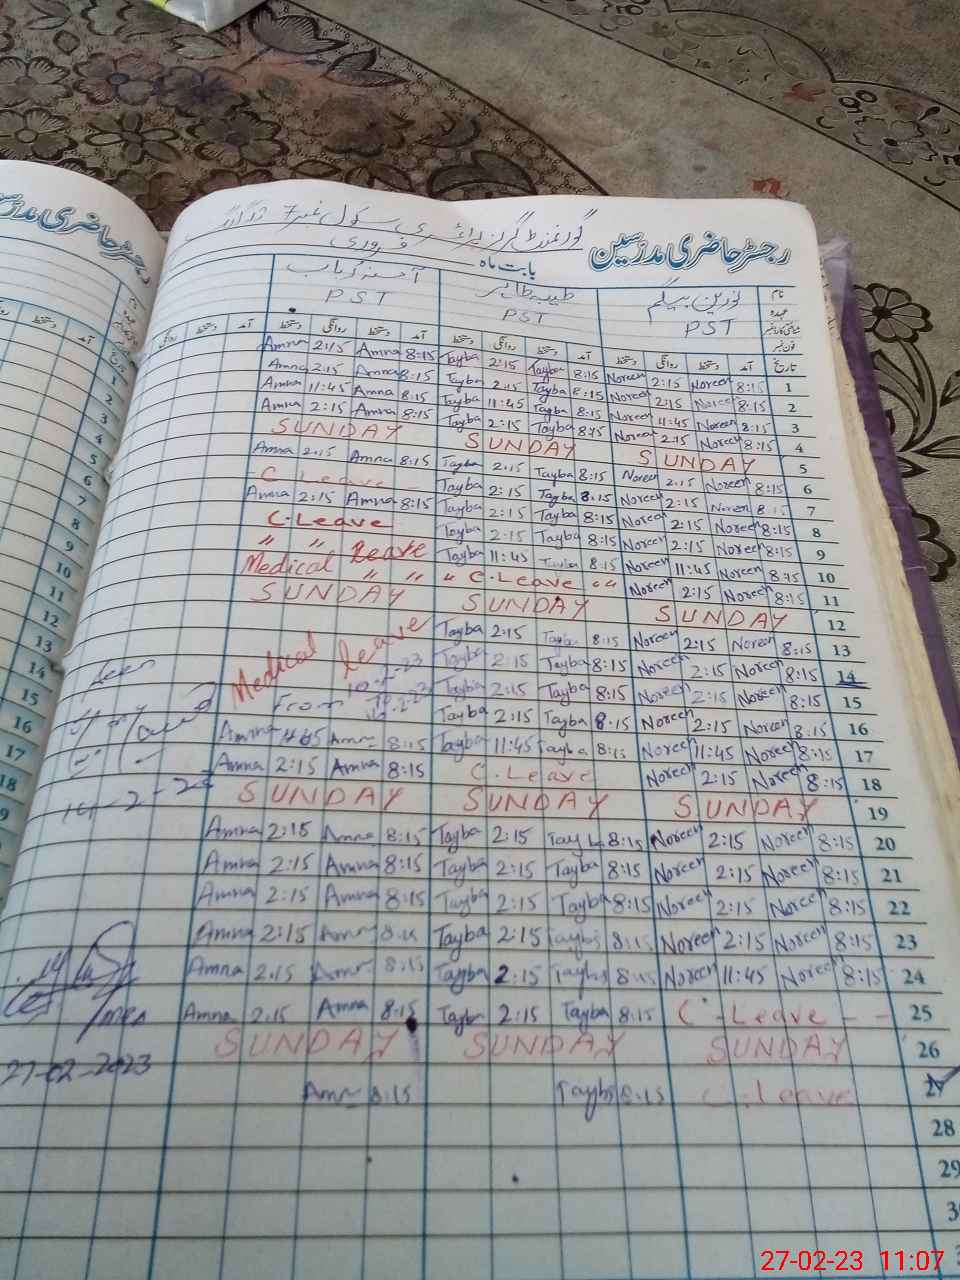 رجسٹر حاضری مدرسین گورنمنٹ گرلز پرائمری سکول نمبر 7
بابت ماہ فروری
نام نورین بیگم طیبہ طاہر آمنہ
عہدہ PST PST PST
تاریخ آمد دستخط روانگی دستخط آمد دستخط روانگی دستخط آمد دستخط روانگی دستخط آمد دستخط روانگی
Amna 2:15 Amna 8:15 Tayba 2:15 Tayba 8:15 Noreen 2:15 Noreen 8:15 1
Amna 2:15 Amna 8:15 Tayba 2:15 Tayba 8:15 Noreen 2:15 Noreen 8:15 2
Amna 11:45 Amna 8:15 Tayba 11:45 Tayba 8:15 Noreen 11:45 Noreen 8:15 3
Amna 2:15 Amna 8:15 Tayba 2:15 Tayba 8:15 Noreen 2:15 Noreen 8:15 4
SUNDAY SUNDAY SUNDAY 5
Amna 2:15 Amna 8:15 Tayba 2:15 Tayba 8:15 Noreen 2:15 Noreen 8:15 6
C Leave - - Tayba 2:15 Tayba 8:15 Noreen 2:15 Noreen 8:15 7
Amna 2:15 Amna 8:15 Tayba 2:15 Tayba 8:15 Noreen 2:15 Noreen 8:15 8
C.Leave Tayba 2:15 Tayba 8:15 Noreen 2:15 Noreen 8:15 9
" " Tayba 11:45 Tayba 8:15 Noreen 11:45 Noreen 8:15 10
Medical Leave " " " C.Leave " " Noreen 2:15 Noreen 8:15 11
SUNDAY SUNDAY SUNDAY 12
Tayba 2:15 Tayba 8:15 Noreen 2:15 Noreen 8:15 13
Medical leave Tayba 2:15 Tayba 8:15 Noreen 2:15 Noreen 8:15 14
From Tayba 2:15 Tayba 8:15 Noreen 2:15 Noreen 8:15 15
Tayba 2:15 Tayba 8:15 Noreen 2:15 Noreen 8:15 16
Amna Amna 8:15 Tayba 11:45 Tayba 8:15 Noreen 11:45 Noreen 8:15 17
Amna 2:15 Amna 8:15 C.Leave Noreen 2:15 Noreen 8:15 18
14-2-23 SUNDAY SUNDAY SUNDAY 19
Amna 2:15 Amna 8:15 Tayba 2:15 Tayba 8:15 Noreen 2:15 Noreen 8:15 20
Amna 2:15 Amna 8:15 Tayba 2:15 Tayba 8:15 Noreen 2:15 Noreen 8:15 21
Amna 2:15 Amna 8:15 Tayba 2:15 Tayba 8:15 Noreen 2:15 Noreen 8:15 22
Amna 2:15 Amna 8:15 Tayba 2:15 Tayba 8:15 Noreen 2:15 Noreen 8:15 23
Amna 2:15 Amna 8:15 Tayba 2:15 Tayba 8:15 Noreen 11:45 Noreen 8:15 24
Amna 2:15 Amna 8:15 Tayba 2:15 Tayba 8:15 C-Leave - - 25
SUNDAY SUNDAY SUNDAY 26
27-02-2023 Amna 8:15 Tayba 8:15 C.leave 27
28
29
27-02-23 11:07